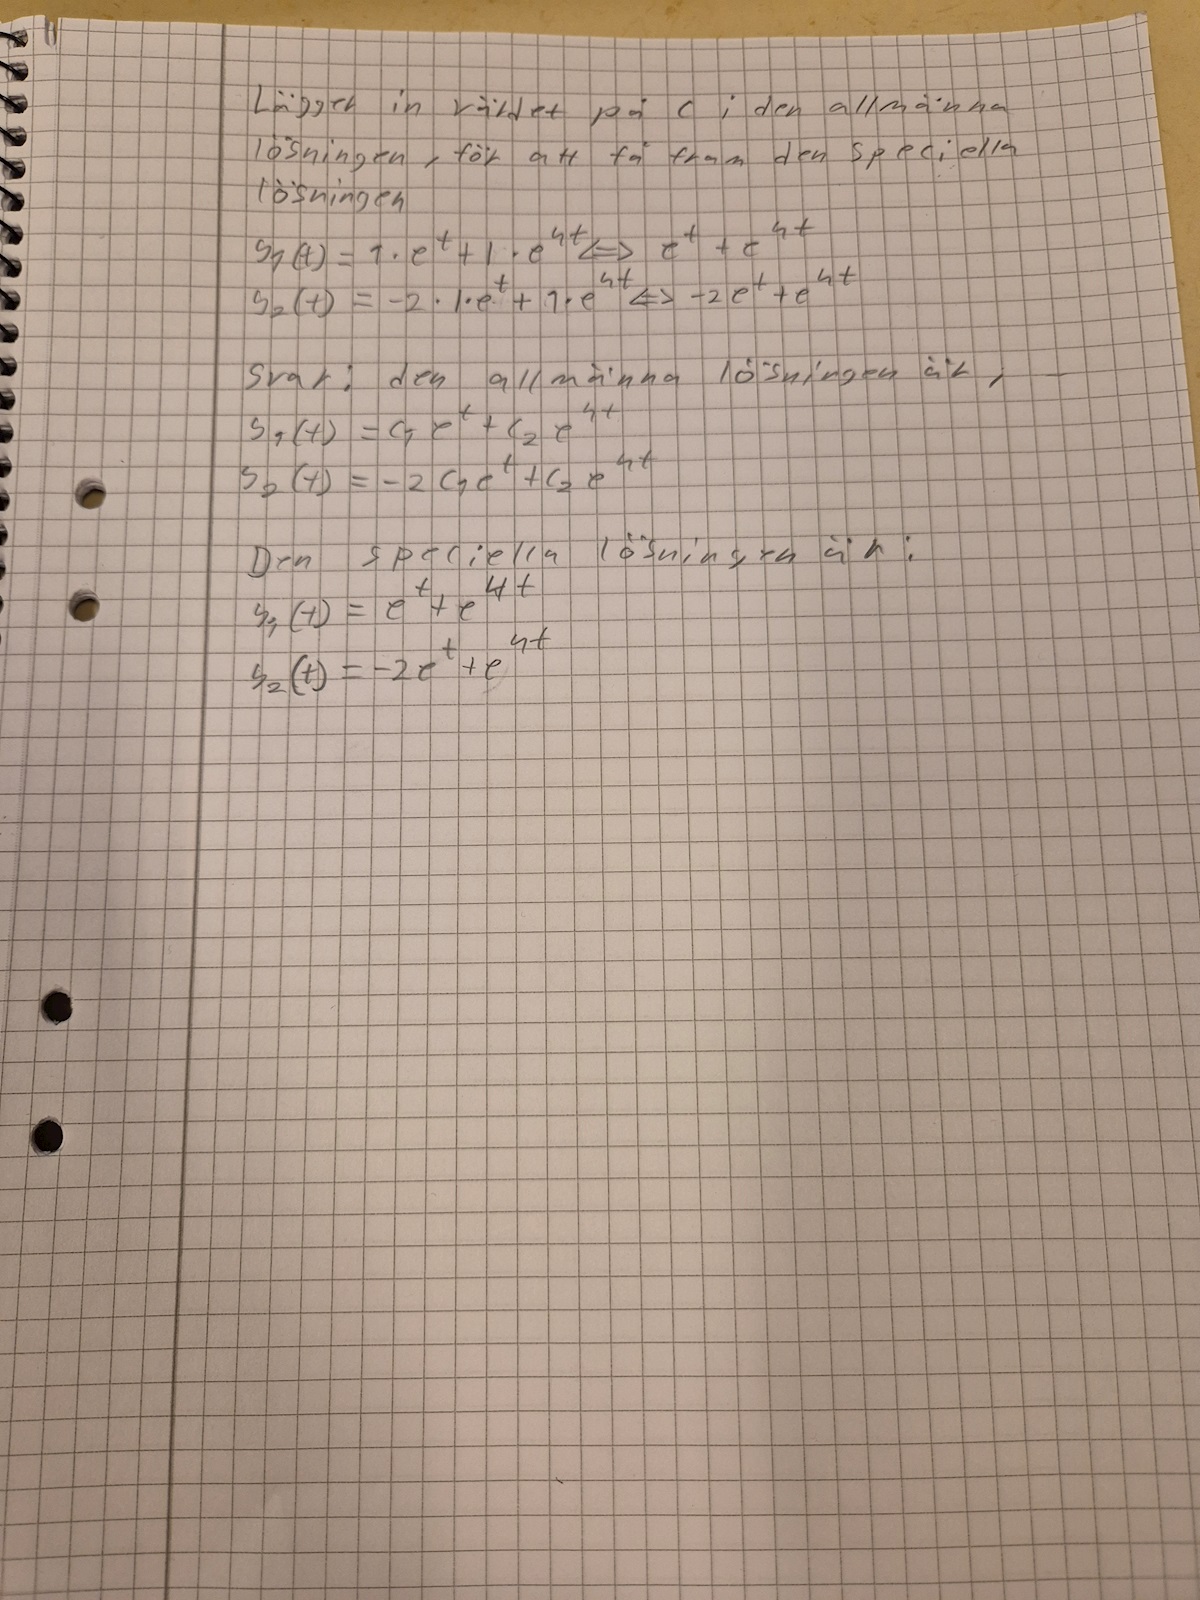 Lägger in värdet på c i den allmänna
lösningen, för att få fram den speciella
lösningen
y₁(t) = 1·eᵗ + 1·e⁴ᵗ <=> eᵗ + e⁴ᵗ
y₂(t) = -2·1·eᵗ + 1·e⁴ᵗ <=> -2eᵗ + e⁴ᵗ
Svar: den allmänna lösningen är,
y₁(t) = C₁eᵗ + C₂e⁴ᵗ
y₂(t) = -2C₁eᵗ + C₂e⁴ᵗ
Den speciella lösningen är:
y₁(t) = eᵗ + e⁴ᵗ
y₂(t) = -2eᵗ + e⁴ᵗ